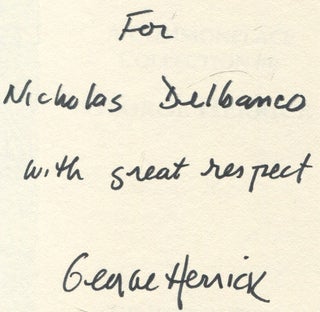 For
Nicholas Delbanco
with great respect
George Herrick